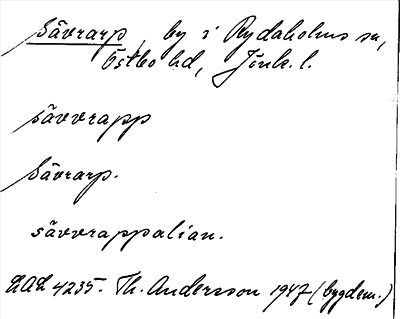 Sävrarp, by i Rydaholms sn,
Östbo hd, Jönk. l.
sävvrapp
Sävrarp.
sävvrappalian.
LAL 4235. Th. Andersson 1947 (bygdem.)